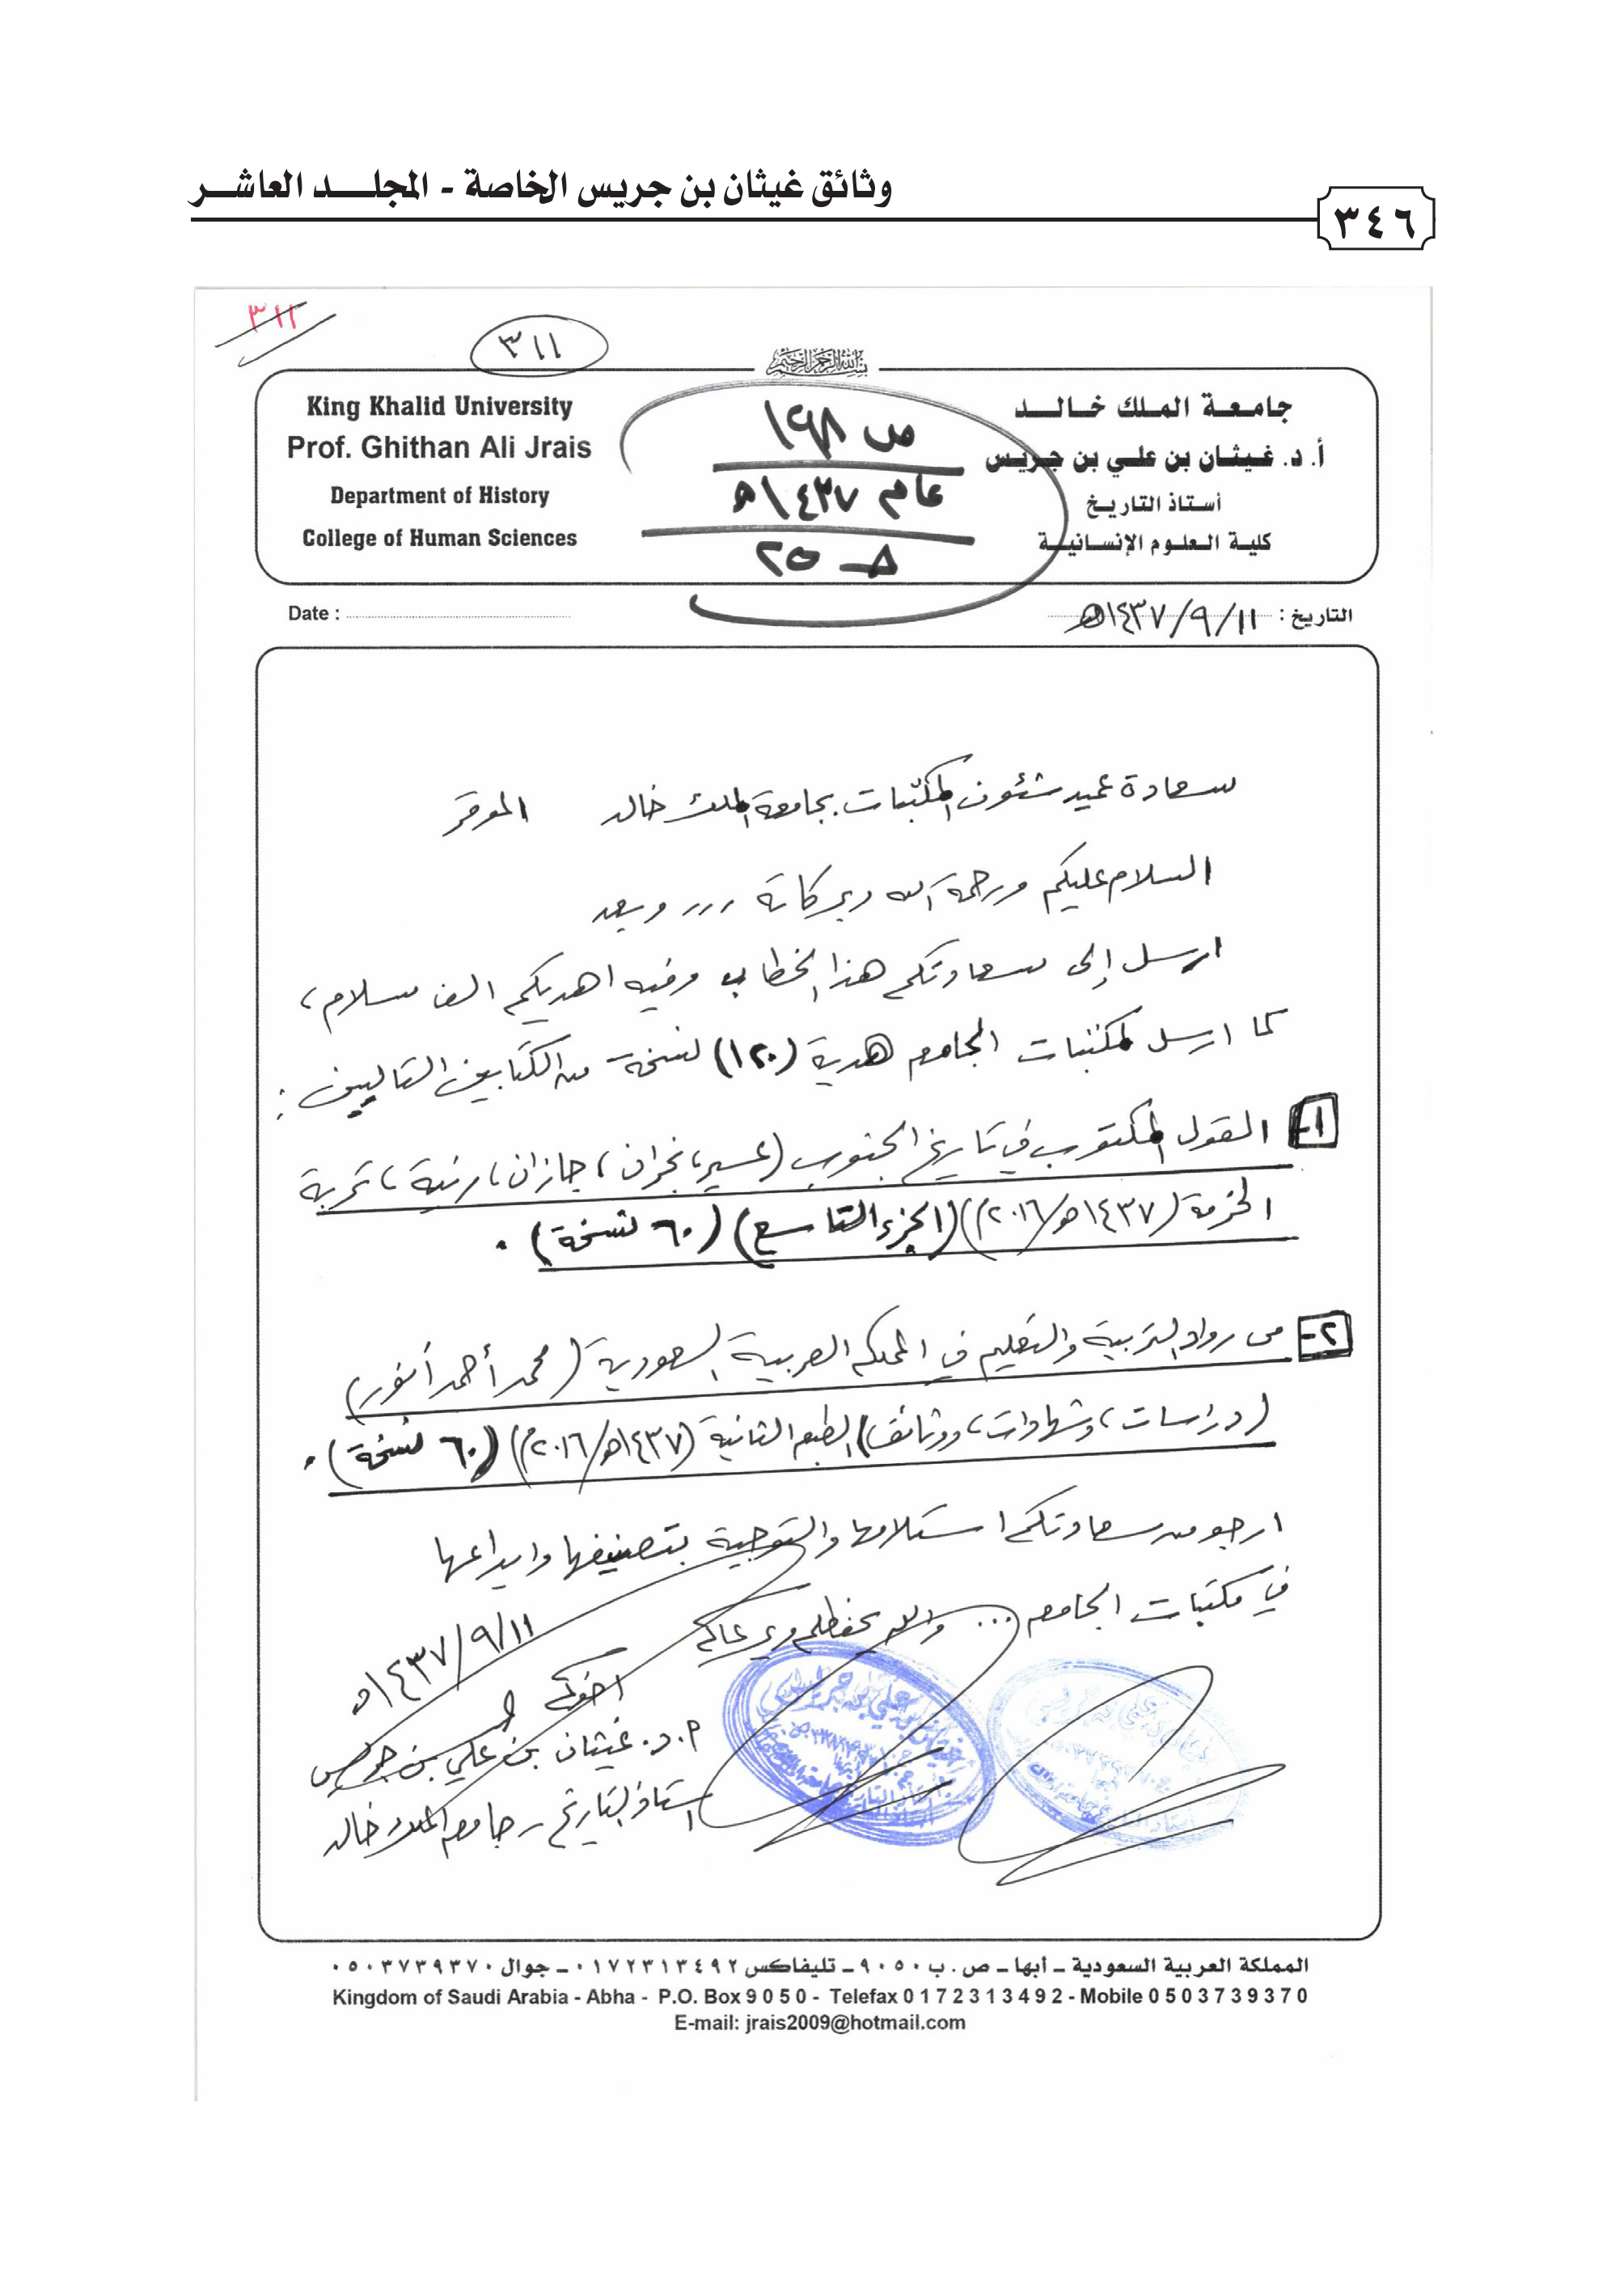 وثائق غيثان بن جريس الخاصة - المجلد العاشر
٣٤٦
٣١١
٣١١
بسم الله الرحمن الرحيم
جامعة الملك خالد
أ. د. غيثان بن علي بن جريس
أستاذ التاريخ
كلية العلوم الإنسانية
King Khalid University
Prof. Ghithan Ali Jrais
Department of History
College of Human Sciences
عام ١٤٣٧هـ
التاريخ : ١١/٩/١٤٣٧هـ
Date :
سعادة عميد شئون المكتبات بجامعة الملك خالد الموقر
السلام عليكم ورحمة الله وبركاتة ،،، وبعد
ارسل إلى سعادتكم هذا الخطاب وفيه اهديكم الف سلام ،
كما ارسل لمكتبات الجامعه هدية (١٢٠) نسخة من الكتابين التاليين :
١- القول المكتوب في تاريخ الجنوب (عسير، نجران، جازان، رنية، تربة
الخرمة (١٤٣٧هـ/٢٠١٦م) (الجزء التاسع) (٦٠ نسخة) .
٢- من رواد التربية والتعليم في المملكه العربية السعودية (محمد أحمد أنور)
(دراسات، وشهادات، ووثائق) الطبعه الثانية (١٤٣٧هـ/٢٠١٦م) (٦٠ نسخة) .
ارجو من سعادتكم استلامها والتوجية بتصنيفها وايداعها
في مكتبات الجامعه ... والله يحفظكم ويرعاكم
١١/٩/١٤٣٧هـ
اخوكم
أ.د. غيثان بن علي بن جريس
استاذ التاريخ - جامعه الملك خالد
المملكة العربية السعودية - أبها - ص . ب ٩٠٥٠ - تليفاكس ٠١٧٢٣١٣٤٩٢ - جوال ٠٥٠٣٧٣٩٣٧٠
Kingdom of Saudi Arabia - Abha - P.O. Box 9 0 5 0 - Telefax 0 1 7 2 3 1 3 4 9 2 - Mobile 0 5 0 3 7 3 9 3 7 0
E-mail: jrais2009@hotmail.com